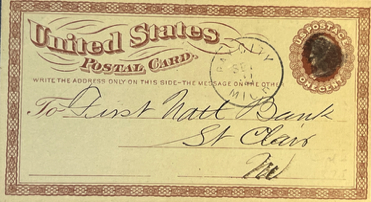 United States
Postal Card.
WRITE THE ADDRESS ONLY ON THIS SIDE-THE MESSAGE ON THE OTHER
U.S. POSTAGE
ONE CENT
MICH
To First Natl Bank
St Clair